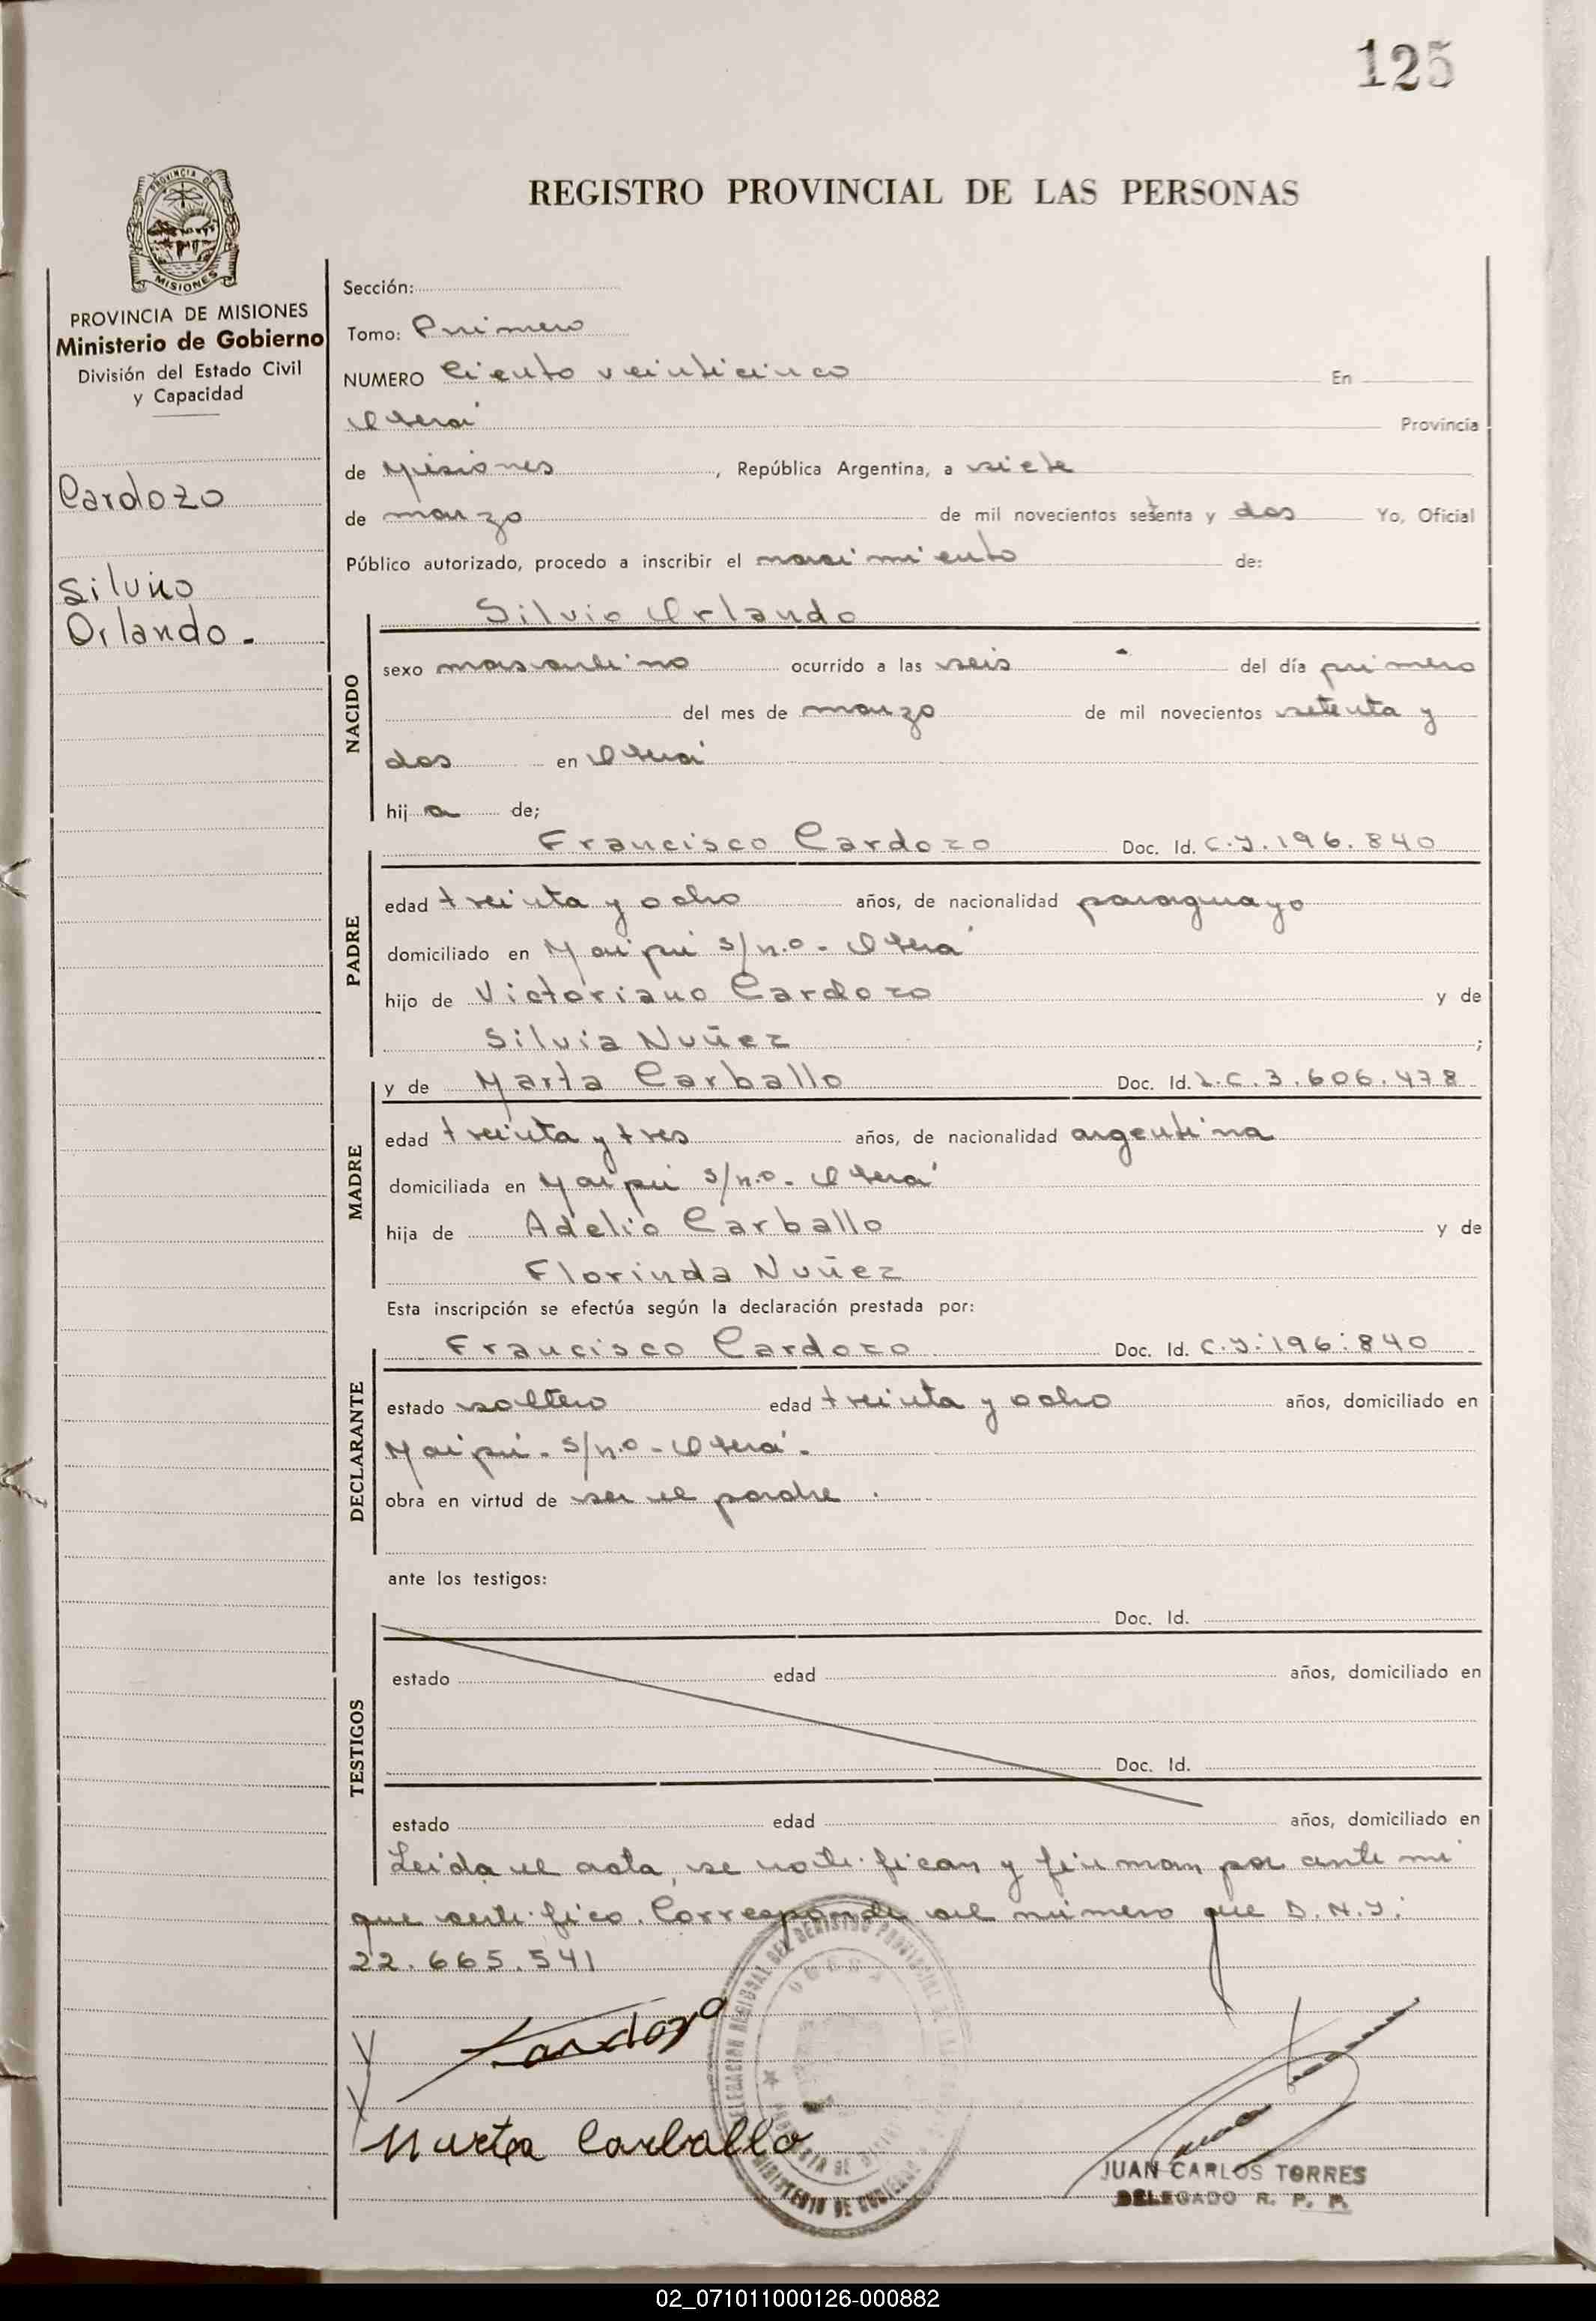 125
REGISTRO PROVINCIAL DE LAS PERSONAS
PROVINCIA DE
MISIONES
PROVINCIA DE MISIONES
Ministerio de Gobierno
División del Estado Civil
y Capacidad
Cardozo
Silvio
Orlando.
Sección:
Tomo: Primero
NUMERO Ciento veinticinco En
Oberá Provincia
de Misiones, República Argentina, a siete
de marzo de mil novecientos setenta y dos Yo, Oficial
Público autorizado, procedo a inscribir el nacimiento de:
Silvio Orlando
NACIDO
sexo masculino ocurrido a las seis del día primero
del mes de marzo de mil novecientos setenta y
dos en Oberá
hija de;
Francisco Cardozo Doc. Id. C.I. 196.840
PADRE
edad treinta y ocho años, de nacionalidad paraguayo
domiciliado en Maipú s/n.o - Oberá
hijo de Victoriano Cardozo y de
Silvia Nuñez ;
y de Marta Carballo Doc. Id. L.C. 3.606.478
MADRE
edad treinta y tres años, de nacionalidad argentina
domiciliada en Maipú s/n.o - Oberá
hija de Adelio Carballo y de
Florinda Nuñez
Esta inscripción se efectúa según la declaración prestada por:
Francisco Cardozo Doc. Id. C.I. 196.840
DECLARANTE
estado soltero edad treinta y ocho años, domiciliado en
Maipú - s/n.o - Oberá.
obra en virtud de ser el padre.
ante los testigos:
Doc. Id.
TESTIGOS
estado edad años, domiciliado en
Doc. Id.
estado edad años, domiciliado en
Leída el acta, se notifican y firman por ante mi
que certifico. Corresponde al número que D.N.I.
22.665.541
Cardozo
Marta Carballo
JUAN CARLOS TORRES
DELEGADO R. P. P.
02_071011000126-000882